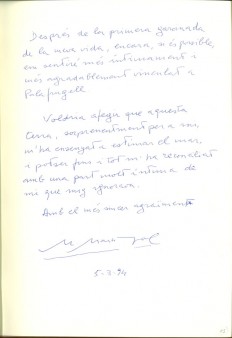 Després de la primera garonada
de la meva vida, encara, si és possible,
em sentiré més íntimament i
més agradablement vinculat a
Palafrugell
Voldria afegir que aquesta
terra, sorprenentment per a mi,
m'ha ensenyat a estimar el mar,
i potser fins i tot m'ha reconciliat
amb una part molt íntima de
mi que vaig ignorava.
Amb el més sincer agraïment
5-3-94